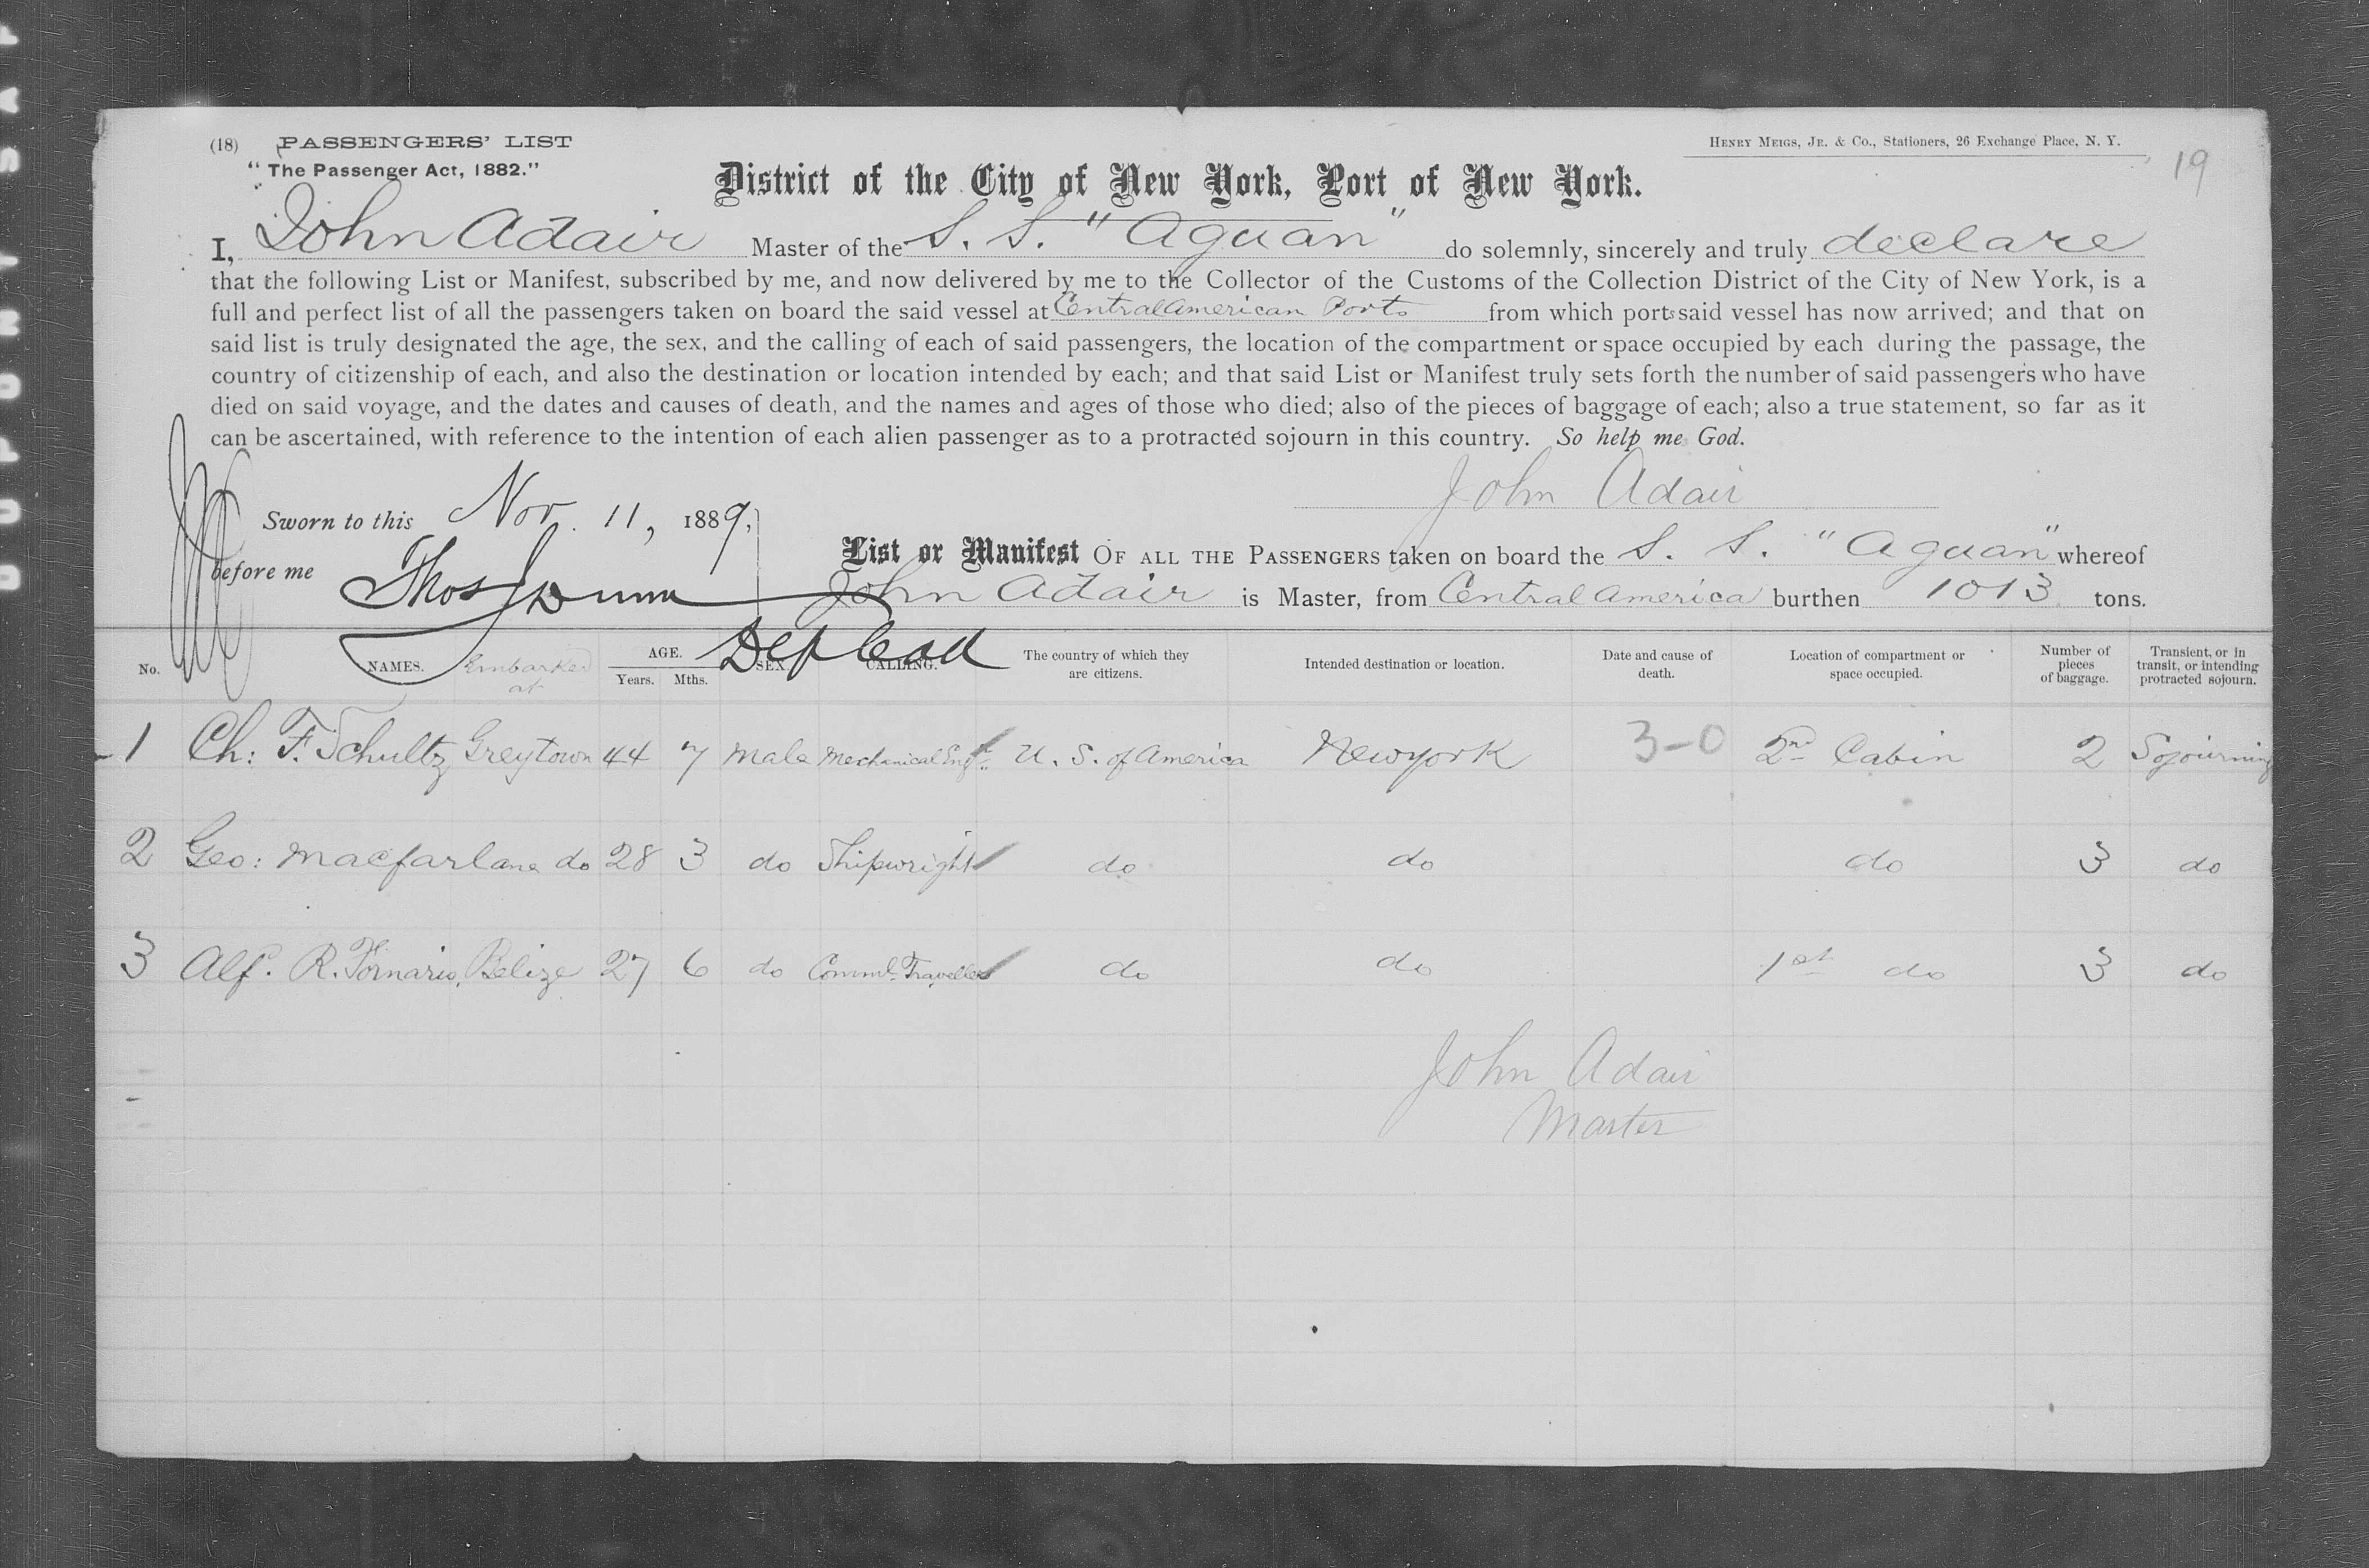 (18) PASSENGERS' LIST
HENRY MEIGS, JR. & CO., Stationers, 26 Exchange Place, N. Y.
"The Passenger Act, 1882."
19
District of the City of New York, Port of New York.
I, John Adair Master of the S. S. "Aguan" do solemnly, sincerely and truly declare
that the following List or Manifest, subscribed by me, and now delivered by me to the Collector of the Customs of the Collection District of the City of New York, is a
full and perfect list of all the passengers taken on board the said vessel at Central American Ports from which ports said vessel has now arrived; and that on
said list is truly designated the age, the sex, and the calling of each of said passengers, the location of the compartment or space occupied by each during the passage, the
country of citizenship of each, and also the destination or location intended by each; and that said List or Manifest truly sets forth the number of said passengers who have
died on said voyage, and the dates and causes of death, and the names and ages of those who died; also of the pieces of baggage of each; also a true statement, so far as it
can be ascertained, with reference to the intention of each alien passenger as to a protracted sojourn in this country. So help me God.
John Adair
Sworn to this Nov. 11, 1889,
before me Thos J Dunn
Dep Coll
List or Manifest OF ALL THE PASSENGERS taken on board the S. S. "Aguan" whereof
John Adair is Master, from Central America burthen 1013 tons.
No. NAMES. Embarked at AGE. Years. Mths. SEX. CALLING. The country of which they are citizens. Intended destination or location. Date and cause of death. Location of compartment or space occupied. Number of pieces of baggage. Transient, or in transit, or intending protracted sojourn.
1 Ch: F. Schultz Greytown 44 7 Male Mechanical Engr. U. S. of America Newyork 3-0 2nd Cabin 2 Sojourning
2 Geo: Macfarlane do 28 3 do Shipwright do do do 3 do
3 Alf. R. Fornaris, Belize 27 6 do Comml. Traveller do do 1st do 3 do
John Adair
Master